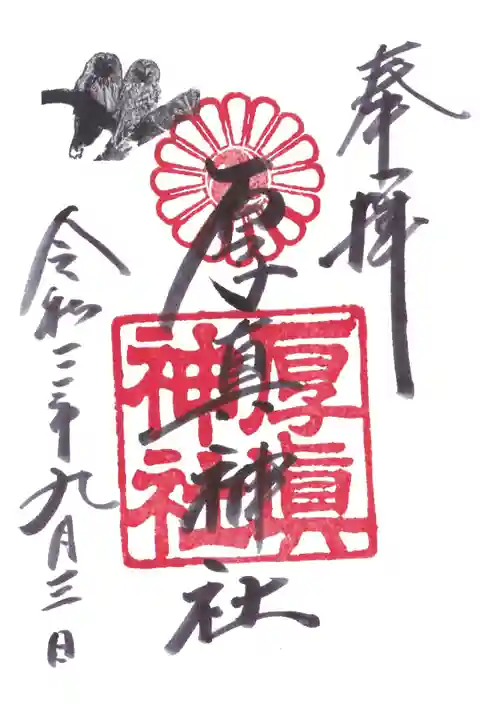 奉拝
厚真神社
厚眞
神社
令和二年九月三日